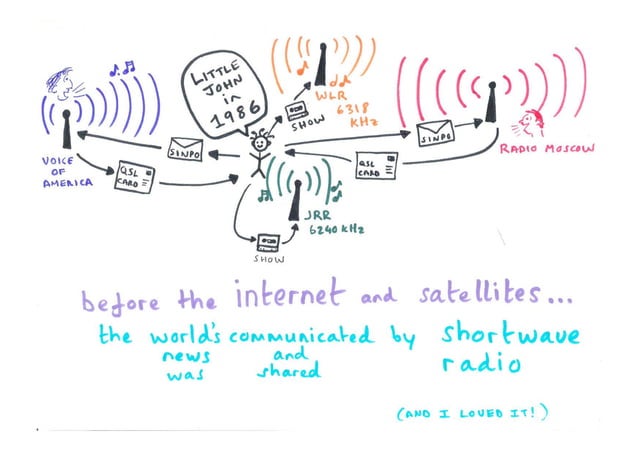 LITTLE
JOHN
in
1986
SINPO
VOICE
OF
AMERICA
QSL
CARD
SHOW
WLR
6318
KHz
SINPO
QSL
CARD
RADIO MOSCOW
JRR
6240 kHz
SHOW
before the internet and satellites...
the world's communicated by shortwave
news and radio
was shared
(AND I LOVED IT!)